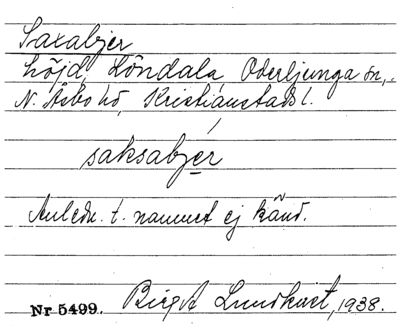 Saxabjer
höjd, Löndala, Oderljunga sn.,
N. Åsbo hd, Kristianstads l.
saksabjer
Anledn. t. namnet ej känd.
Nr 5499. Birgit Lundkvist, 1938.